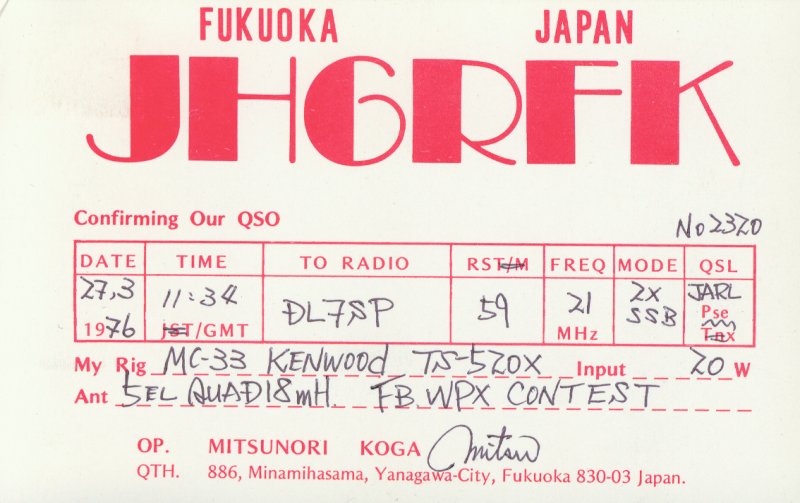 FUKUOKA JAPAN
JH6RFK
Confirming Our QSO No 2320
DATE TIME TO RADIO RST/M FREQ MODE QSL
27,3 11:34 DL7SP 59 21 2X SSB JARL Pse
1976 JST/GMT MHz Tnx
My Rig MC-33 KENWOOD TS-520X Input 20 W
Ant 5EL QUAD 18mH FB WPX CONTEST
OP. MITSUNORI KOGA Mitsu
QTH. 886, Minamihasama, Yanagawa-City, Fukuoka 830-03 Japan.